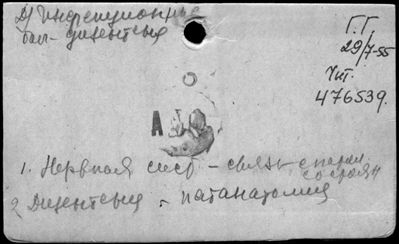 Д) Инфекционные
бол - дизентерия
Г. Г.
29/7-55
Чит.
476539.
А
1. Нервная сист - связь с патол.
состоян
2. Дизентерия - патанатомия